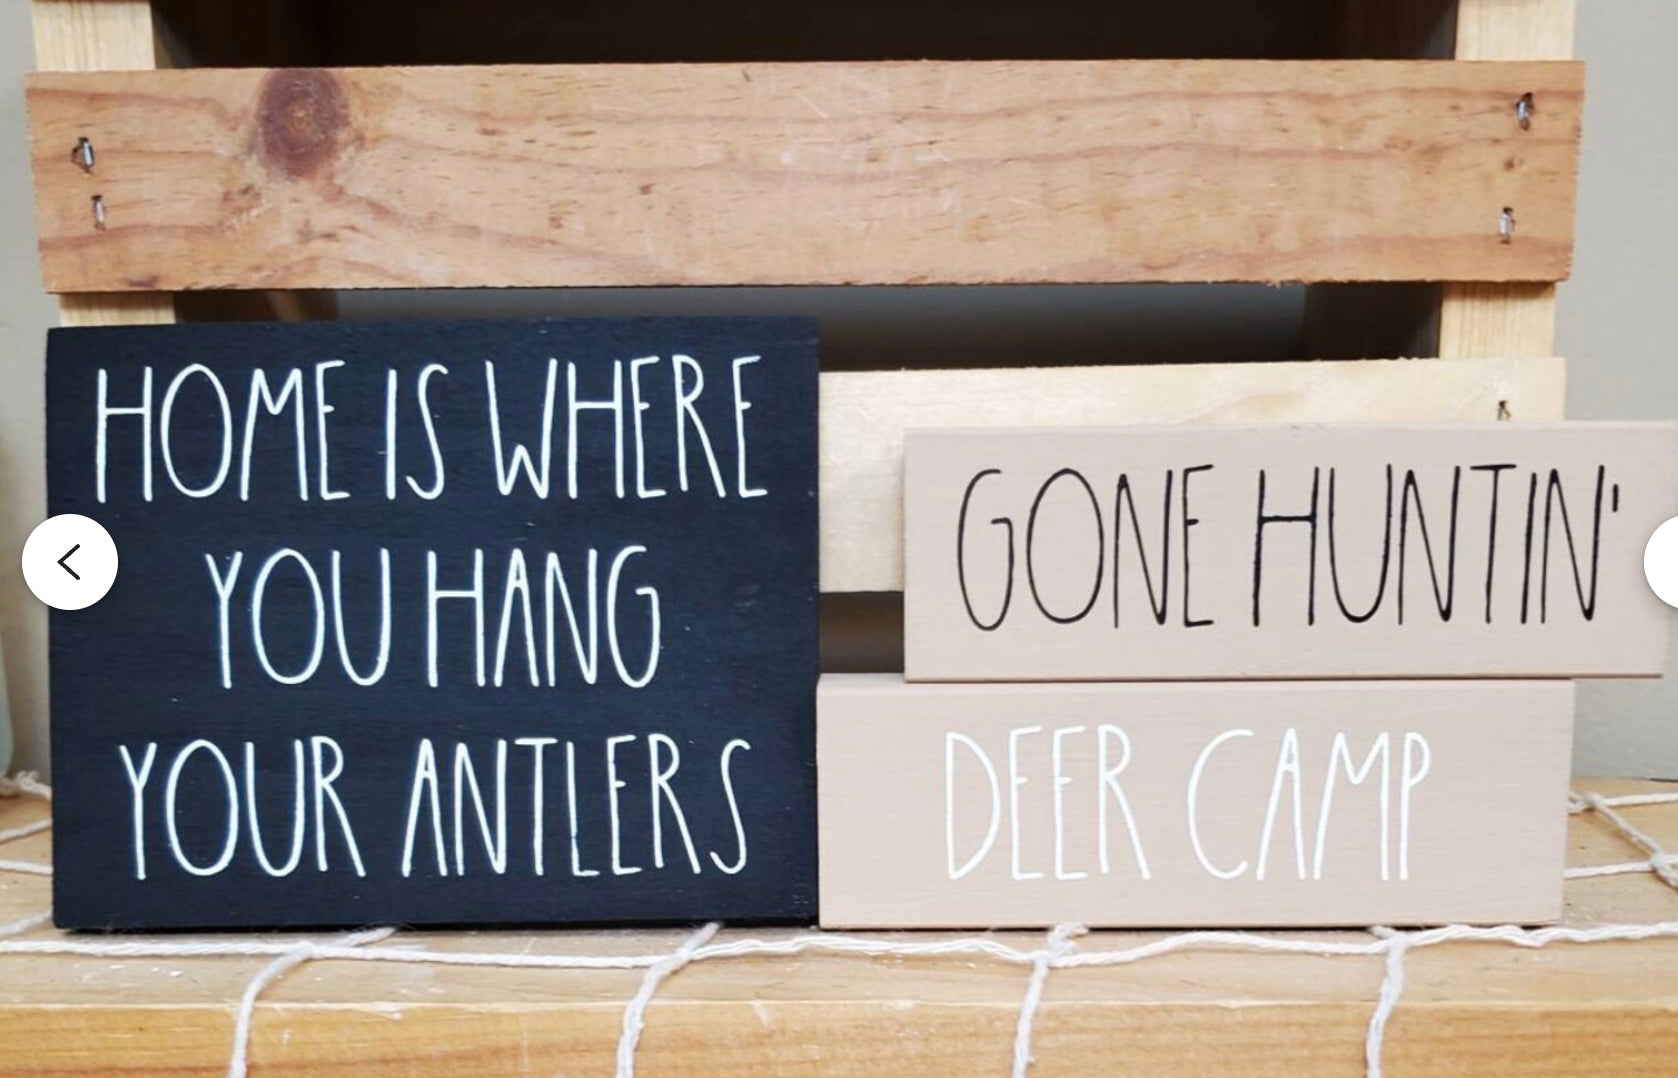 HOME IS WHERE
YOU HANG
YOUR ANTLERS
GONE HUNTIN'
DEER CAMP